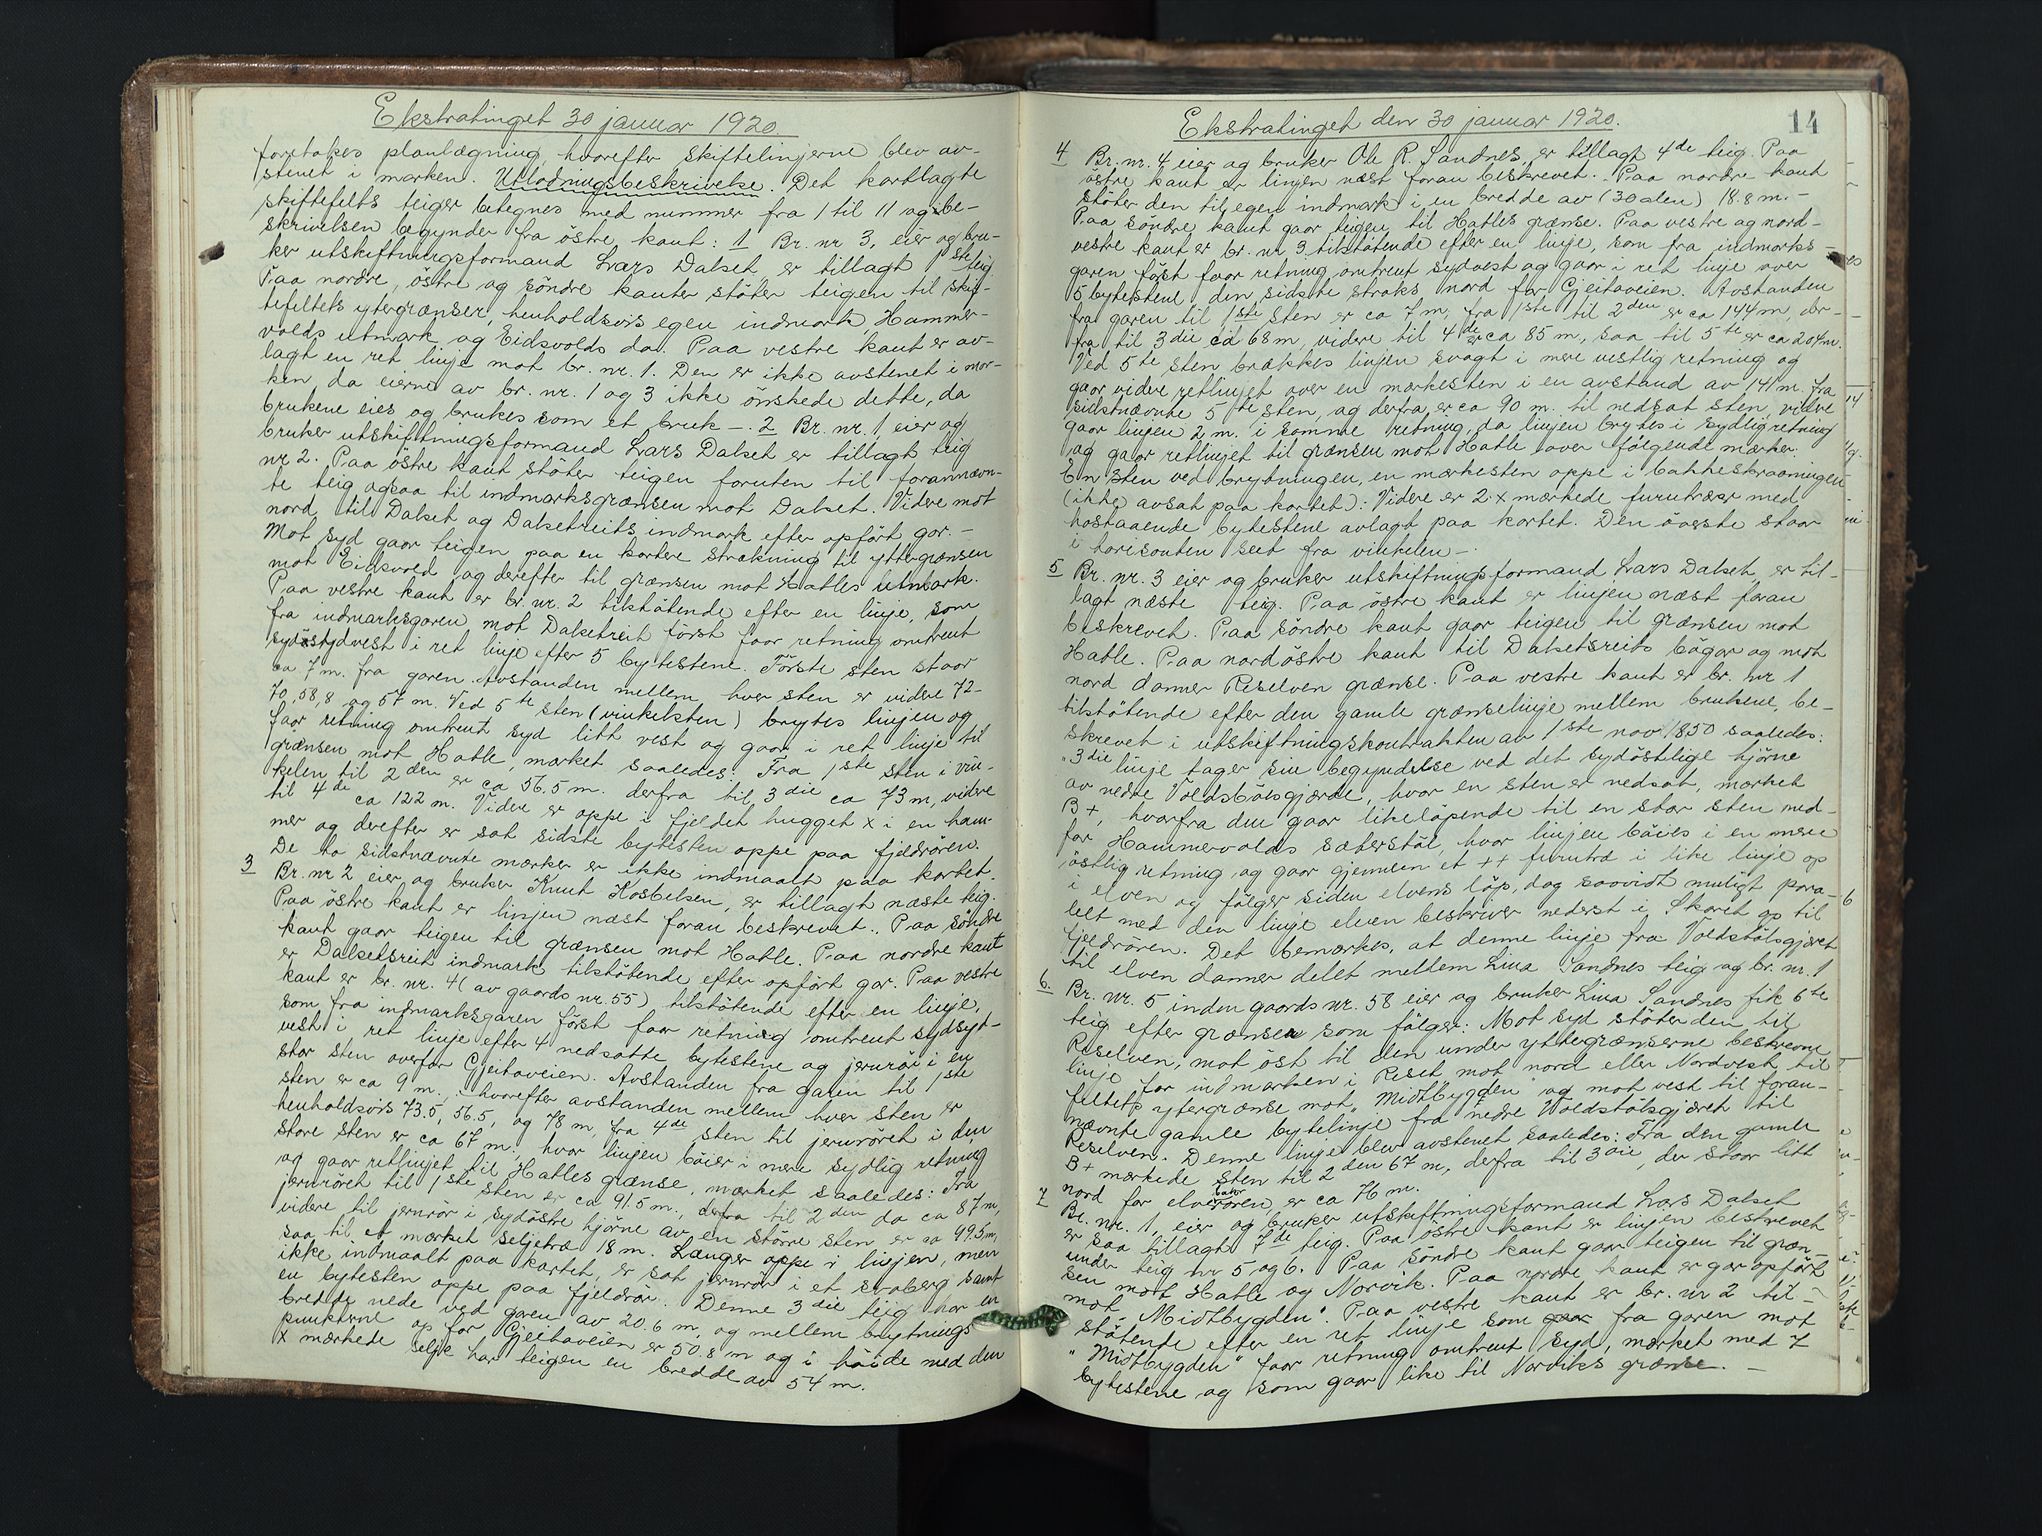 Ekstratinget 30 januar 1920
foretokes planlægning, hvorefter skiftelinjerne blev av-
stenet i marken. Utlodningsbeskrivelse. Det kartlagte
skiftefelts teiger betegnes med nummer fra 1 til 11 og be-
skrivelsen begynder fra östre kant: 1 Br. nr 3, eier og bru-
ker utskiftningsformand Lars Dalset er tillagt 1ste teig.
Paa nordre, östre og söndre kanter stöter teigen til skif-
tefeltets ytergrænser, henholdsvis egen indmark, Hammer-
volds utmark, og Eidsvolds do. Paa vestre kant er av-
lagt en ret linje mot br. nr. 1. Den er ikke avstenet i mar-
ken da eierne av br. nr. 1 og 3 ikke önskede dette, da
brukene eies og brukes som et bruk –. 2 Br. nr. 1, eier og
bruker utskiftningsformand Lars Dalset er tillagt teig
nr 2. Paa östre kant stöter teigen foruten til forannævn-
te teig ogsaa til indmarksgrænsen mot Dalset. Videre mot
nord til Dalset og Dalsetreits indmark efter opfört gar. –
Mot syd gaar teigen paa en kortere strækning til yttergrænsen
mot Eidsvold og derefter til grænsen mot Hatles utmark.
Paa vestre kant er br. nr. 2 tilstötende efter en linje, som
fra indmarksgaren mot Dalsetreit först faar retning omtrent
sydsydvest i ret linje efter 5 bytestene. Förste sten staar
ca 7 m. fra garen. Avstanden mellem hver sten er videre 72-
70, 58,8 og 57 m. Ved 5te sten (vinkelsten) brytes linjen og
faar retning omtrent syd litt vest og gaar i ret linje til
grænsen mot Hatle, mærket saaledes: Fra 1ste sten i vin-
kelen til 2den er ca 56.5 m. derfra til 3die ca 73 m, videre
til 4de ca 122 m. Videre er oppe i fjeldet hugget x i en ham-
mer og derefter er sat sidste bytesten oppe paa fjeldrören.
De to sidstnævnte mærker er ikke indmaalt paa kartet.
3 Br. nr 2 eier og bruker Knut Kosbelsen, er tillagt næste teig.
Paa östre kant er linjen næst foran beskrevet. Paa söndre
kant gaar teigen til grænsen mot Hatle. Paa nordre kant
er Dalsetsreit indmark tilstötende efter opfört gar. Paa vestre
kant er br. nr. 4 (av gaards nr. 55) tilstötende efter en linje,
som fra indmarksgaren först faar retning omtrent sydsyd-
vest i ret linje efter 4 nedsatte bytestene og jernrör i en
stor sten overfor Gjeitaveien. Avstanden fra garen til 1ste
sten er ca 9 m., hvorefter avstanden mellem hver sten er
henholdsvis 73.5, 56.5, og 78 m, fra 4de sten til jernröret i den
store sten er ca 67 m, hvor linjen böier i mere sydlig retning
og gaar retlinjet til Hatles grænse, mærket saaledes: Fra
jernröret til 1ste sten er ca 91.5 m., derfra til 2den do ca 87 m,
videre til jernrör i sydöstre hjörne av en större sten er ca 99.5 m,
saa til et mærket seljetræ 18 m. Længer oppe i linjen, men
ikke indmaalt paa kartet, er sat jernrör i et svaberg samt
en bytesten oppe paa fjeldrör. Denne 3die teig har en
bredde nede ved garen av 20.6 m, og mellem brytnings
punkterne op for Gjeitaveien er 50.8 m og i höide med den
x mærkede selje har teigen en bredde av 54 m.
Ekstratinget den 30 januar 1920.
14
4 Br. nr. 4 eier og bruker Ole R. Sandnes, er tillagt 4de teig. Paa
östre kant er linjen næst foran beskrevet. Paa nordre kant
stöter den til egen indmark i en bredde av (30 alen) 18.8 m. –
Paa söndre kant gaar teigen til Hatles grænse. Paa vestre og nord-
vestre kant er br. nr. 3 tilstötende efter en linje, som fra indmarks-
garen först faar retning omtrent sydvest og gaar i ret linje over
5 bytestene, den sidste straks nord for Gjeitaveien. Avstanden
fra garen til 1ste sten er ca 7 m, fra 1ste til 2den er ca 144 m, der-
fra til 3die ca 68 m, videre til 4de er ca 85 m, saa til 5te er ca 204 m.
Ved 5te sten brækkes linjen svagt i mere vestlig retning og
gaar videre retlinjet over en mærkesten i en avstand av 141 m. fra
sidstnævnte 5te sten, og derfra er ca 90 m. til nedsat sten, videre
gaar linjen 2 m. i samme retning, da linjen brytes i sydlig retning
og gaar retlinjet til grænsen mot Hatle over fölgende mærker:
En sten ved brytningen, en mærkesten oppe i bakkeskraaningen
(ikke avsat paa kartet): Videre er 2 x mærkede furutrær med
hosstaaende bytestene avlagt paa kartet. Den överste staar
i horisonten seet fra vinkelen –.
5 Br. nr. 3 eier og bruker utskiftningsformand Lars Dalset, er til-
lagt næste teig. Paa östre kant er linjen næst foran
beskrevet. Paa söndre kant gaar teigen til grænsen mot
Hatle. Paa nordöstre kant til Dalsetsreits bögar og mot
nord danner Reselven grænse. Paa vestre kant er br. nr 1
tilstötende efter den gamle grænselinje mellem brukene, be-
skrevet i utskiftningskontrakten av 1ste nov 1850 saaledes:
"3die linje tager sin begyndelse ved det sydöstlige hjörne
av nedre Voldstölsgjærde, hvor en sten er nedsat, mærket
B+, hvorfra den gaar likelöpende til en stor sten ned-
for Hammervolds sæterstöl, hvor linjen böies i en mere
östlig retning og gaar gjennem et ++ furutræ i like linje op
i elven og fölger siden elvens löp, dog saavidt muligt para-
lelt med den linje elven beskriver nederst i Skaret op til
fjeldrören. Det bemærkes, at denne linje fra Voldstölsgjæret
til elven danner delet mellem Lina Sandnes teig og br. nr. 1
6. Br. nr. 5 inden gaards nr. 58 eier og bruker Lina Sandnes fik 6te
teig efter grænser som fölger: Mot syd stöter den til
Reselven, mot öst til den under yttergrænserne beskrevne
linje for indmarken i Reset mot nord eller Nordvest til
feltets ytergrænse mot "Midtbygden" og mot vest til foran-
nævnte gamle bytelinje fra nedre Voldstölsgjæret til
Reselven. Denne linje blev avstenet saaledes: Fra den gamle
B+ mærkede sten til 2den 67 m, derfra til 3die, der staar litt
nord for elvebakkrören, er ca 76 m.
7 Br. nr. 1, eier og bruker utskiftningsformand Lars Dalset
er saa tillagt 7de teig. Paa östre kant er linjen beskrevet
under teig nr 5 og 6. Paa söndre kant gaar teigen til græn-
sen mot Hatle og Norvik. Paa nordre kant er gar opfört
mot "Midtbygden". Paa vestre kant er br. nr 2 til-
stötende efter en ret linje som gaar fra garen mot
"Midtbygden" faar retning omtrent syd, mærket med 7
bytestene og som gaar like til Norviks grænse. –